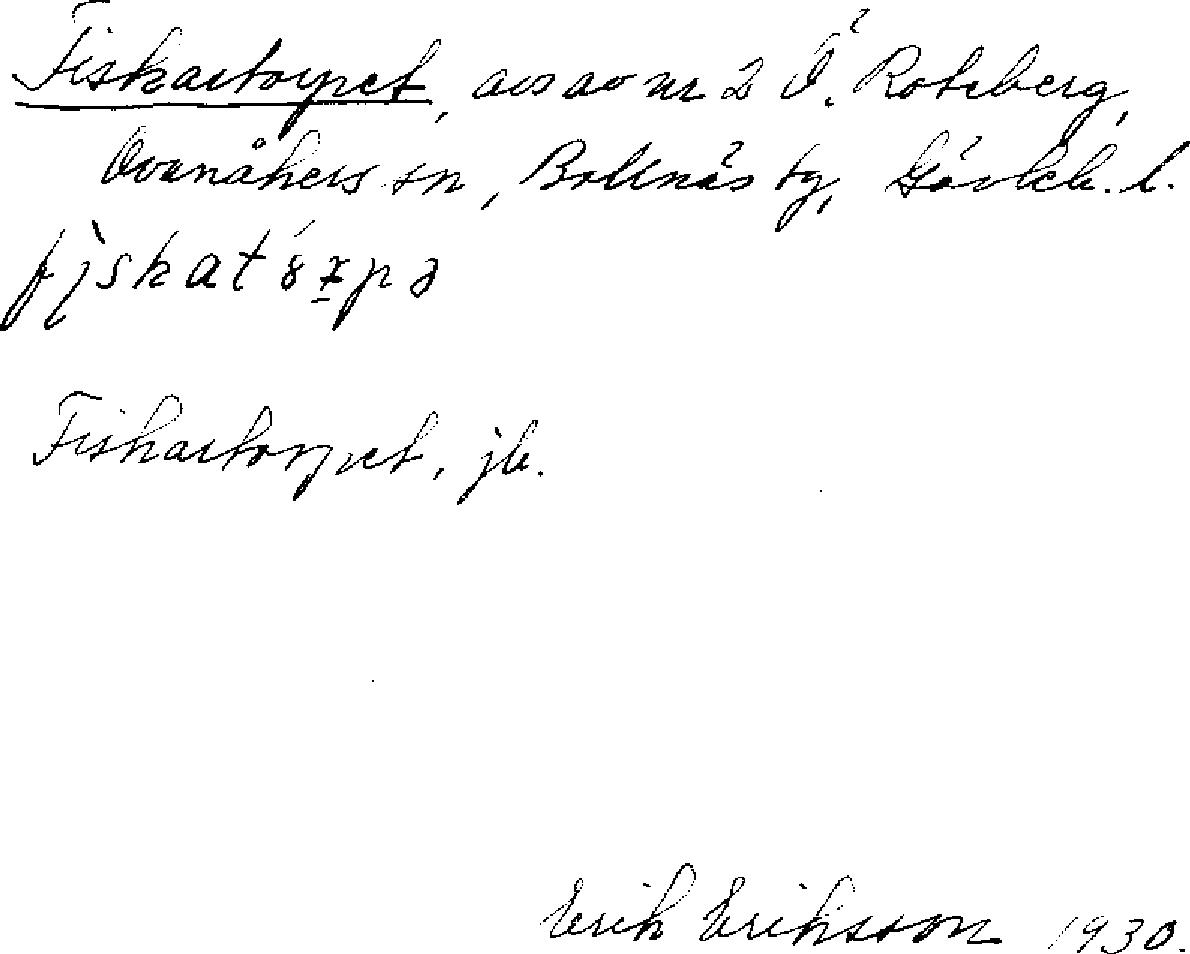 Fiskartorpet, avs av nr 2 Ö. Roteberg,
Ovanåkers sn, Bollnäs tg, Gävleb. l.
Fiskartorpet, jb.
Erik Eriksson 1930.